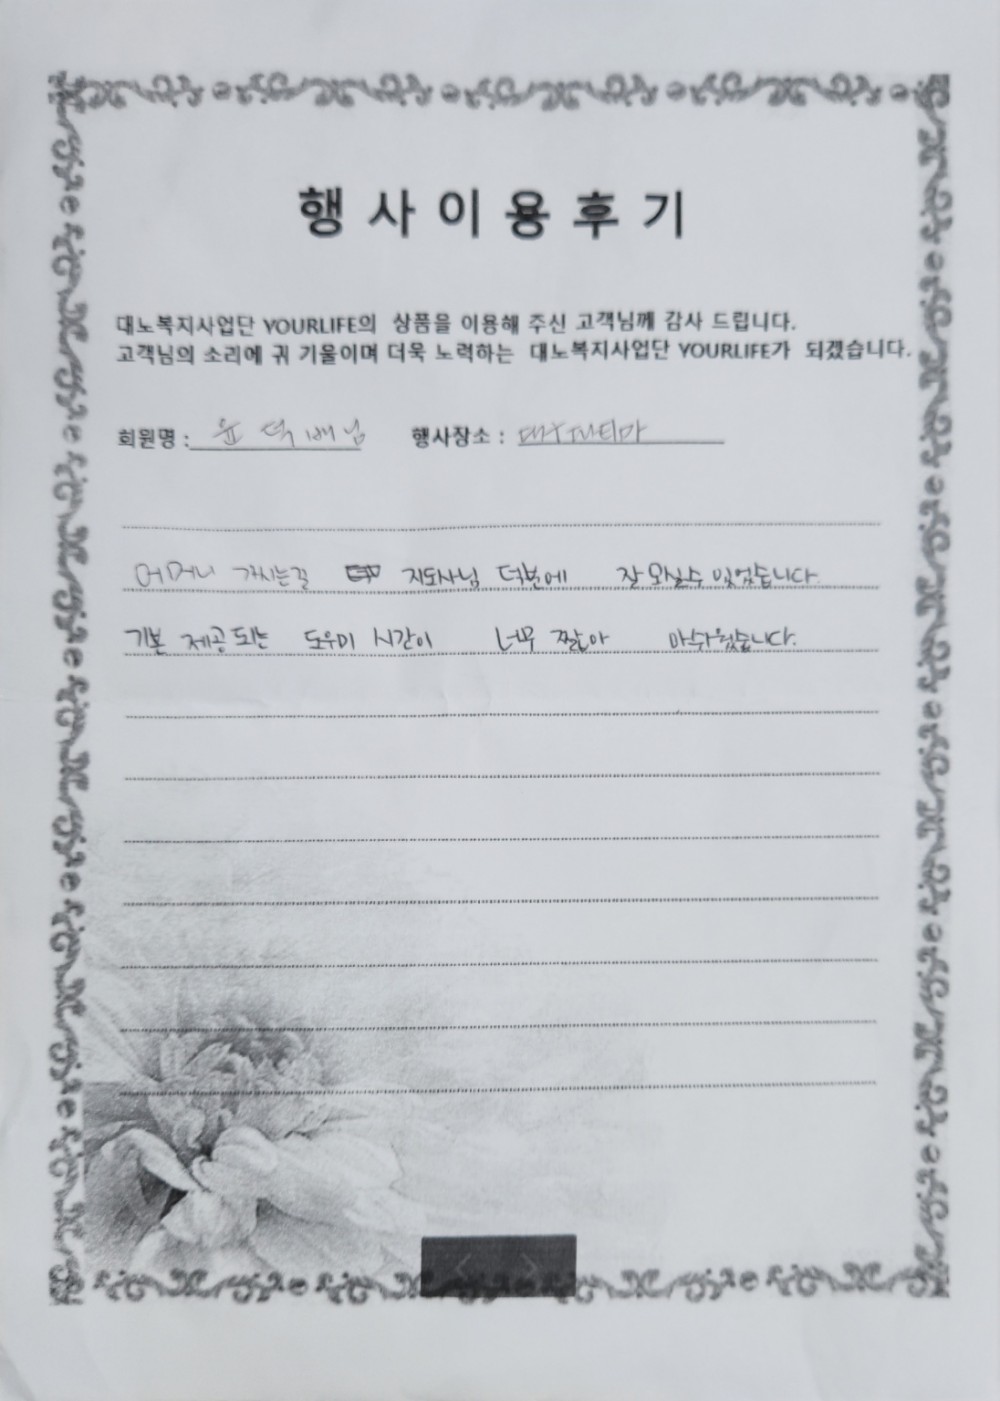 행사이용후기
대노복지사업단 YOURLIFE의 상품을 이용해 주신 고객님께 감사 드립니다.
고객님의 소리에 귀 기울이며 더욱 노력하는 대노복지사업단 YOURLIFE가 되겠습니다.
회원명 : 윤덕배님 행사장소 :
어머니 가시는길 지도사님 덕분에 잘 모실수 있었습니다.
기본 제공되는 도우미 시간이 너무 짧아 아쉬웠습니다.